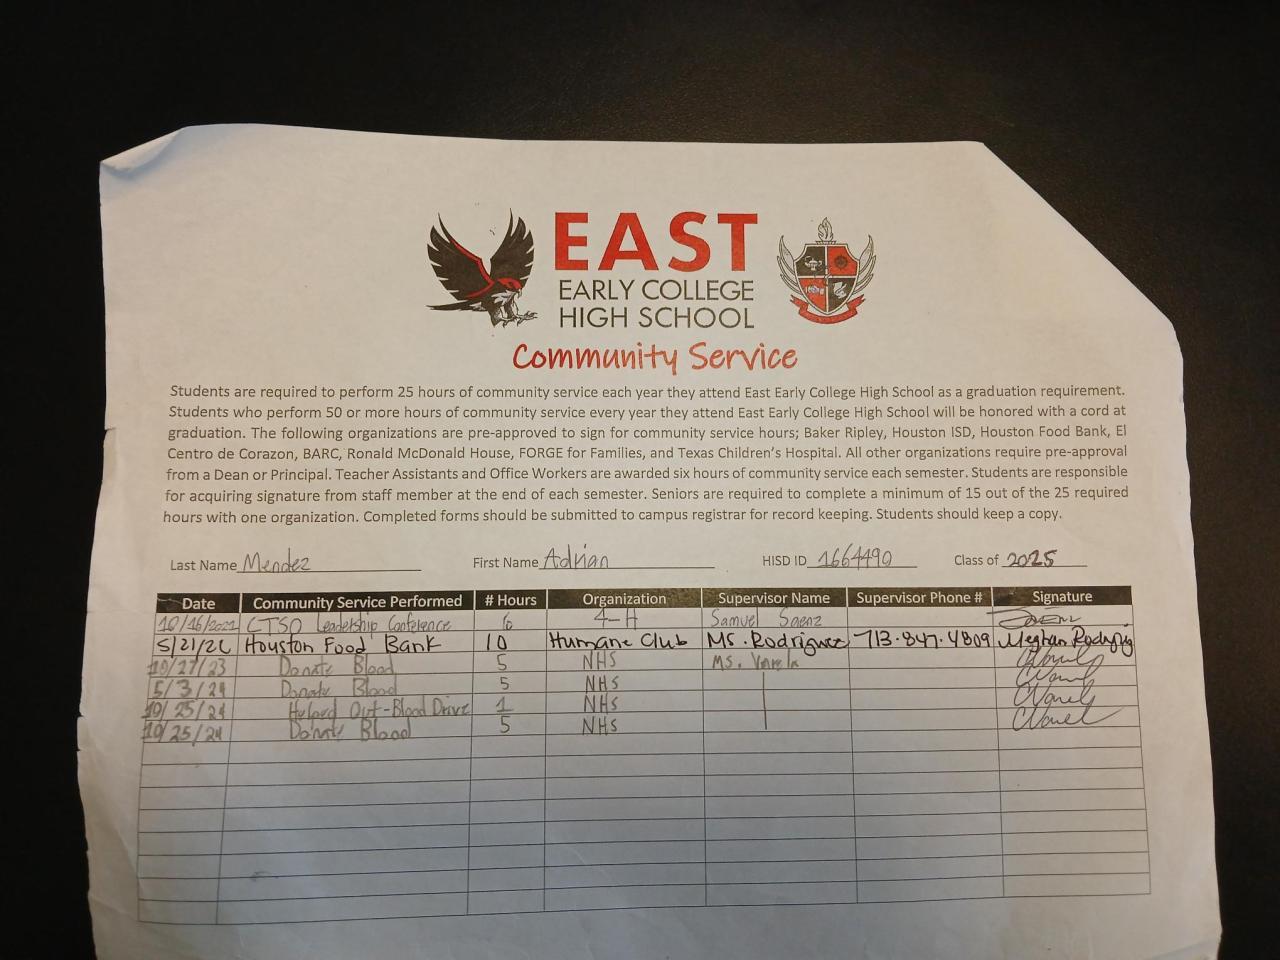 EAST
EARLY COLLEGE
HIGH SCHOOL
Community Service
Students are required to perform 25 hours of community service each year they attend East Early College High School as a graduation requirement.
Students who perform 50 or more hours of community service every year they attend East Early College High School will be honored with a cord at
graduation. The following organizations are pre-approved to sign for community service hours; Baker Ripley, Houston ISD, Houston Food Bank, El
Centro de Corazon, BARC, Ronald McDonald House, FORGE for Families, and Texas Children's Hospital. All other organizations require pre-approval
from a Dean or Principal. Teacher Assistants and Office Workers are awarded six hours of community service each semester. Students are responsible
for acquiring signature from staff member at the end of each semester. Seniors are required to complete a minimum of 15 out of the 25 required
hours with one organization. Completed forms should be submitted to campus registrar for record keeping. Students should keep a copy.
Last Name Mendez First Name Adrian HISD ID 1664490 Class of 2025
Date Community Service Performed # Hours Organization Supervisor Name Supervisor Phone # Signature
CTSO Leadership Conference 6 4-H Samuel Saenz
Houston Food Bank 10 Humane Club Ms. Rodriguez 713-847-4809 Meghan
10/27/23 Donate Blood 5 NHS Ms. Varela
5/3/24 Donate Blood 5 NHS
10/25/24 Out-Blood Drive 1 NHS
10/25/24 Donate Blood 5 NHS